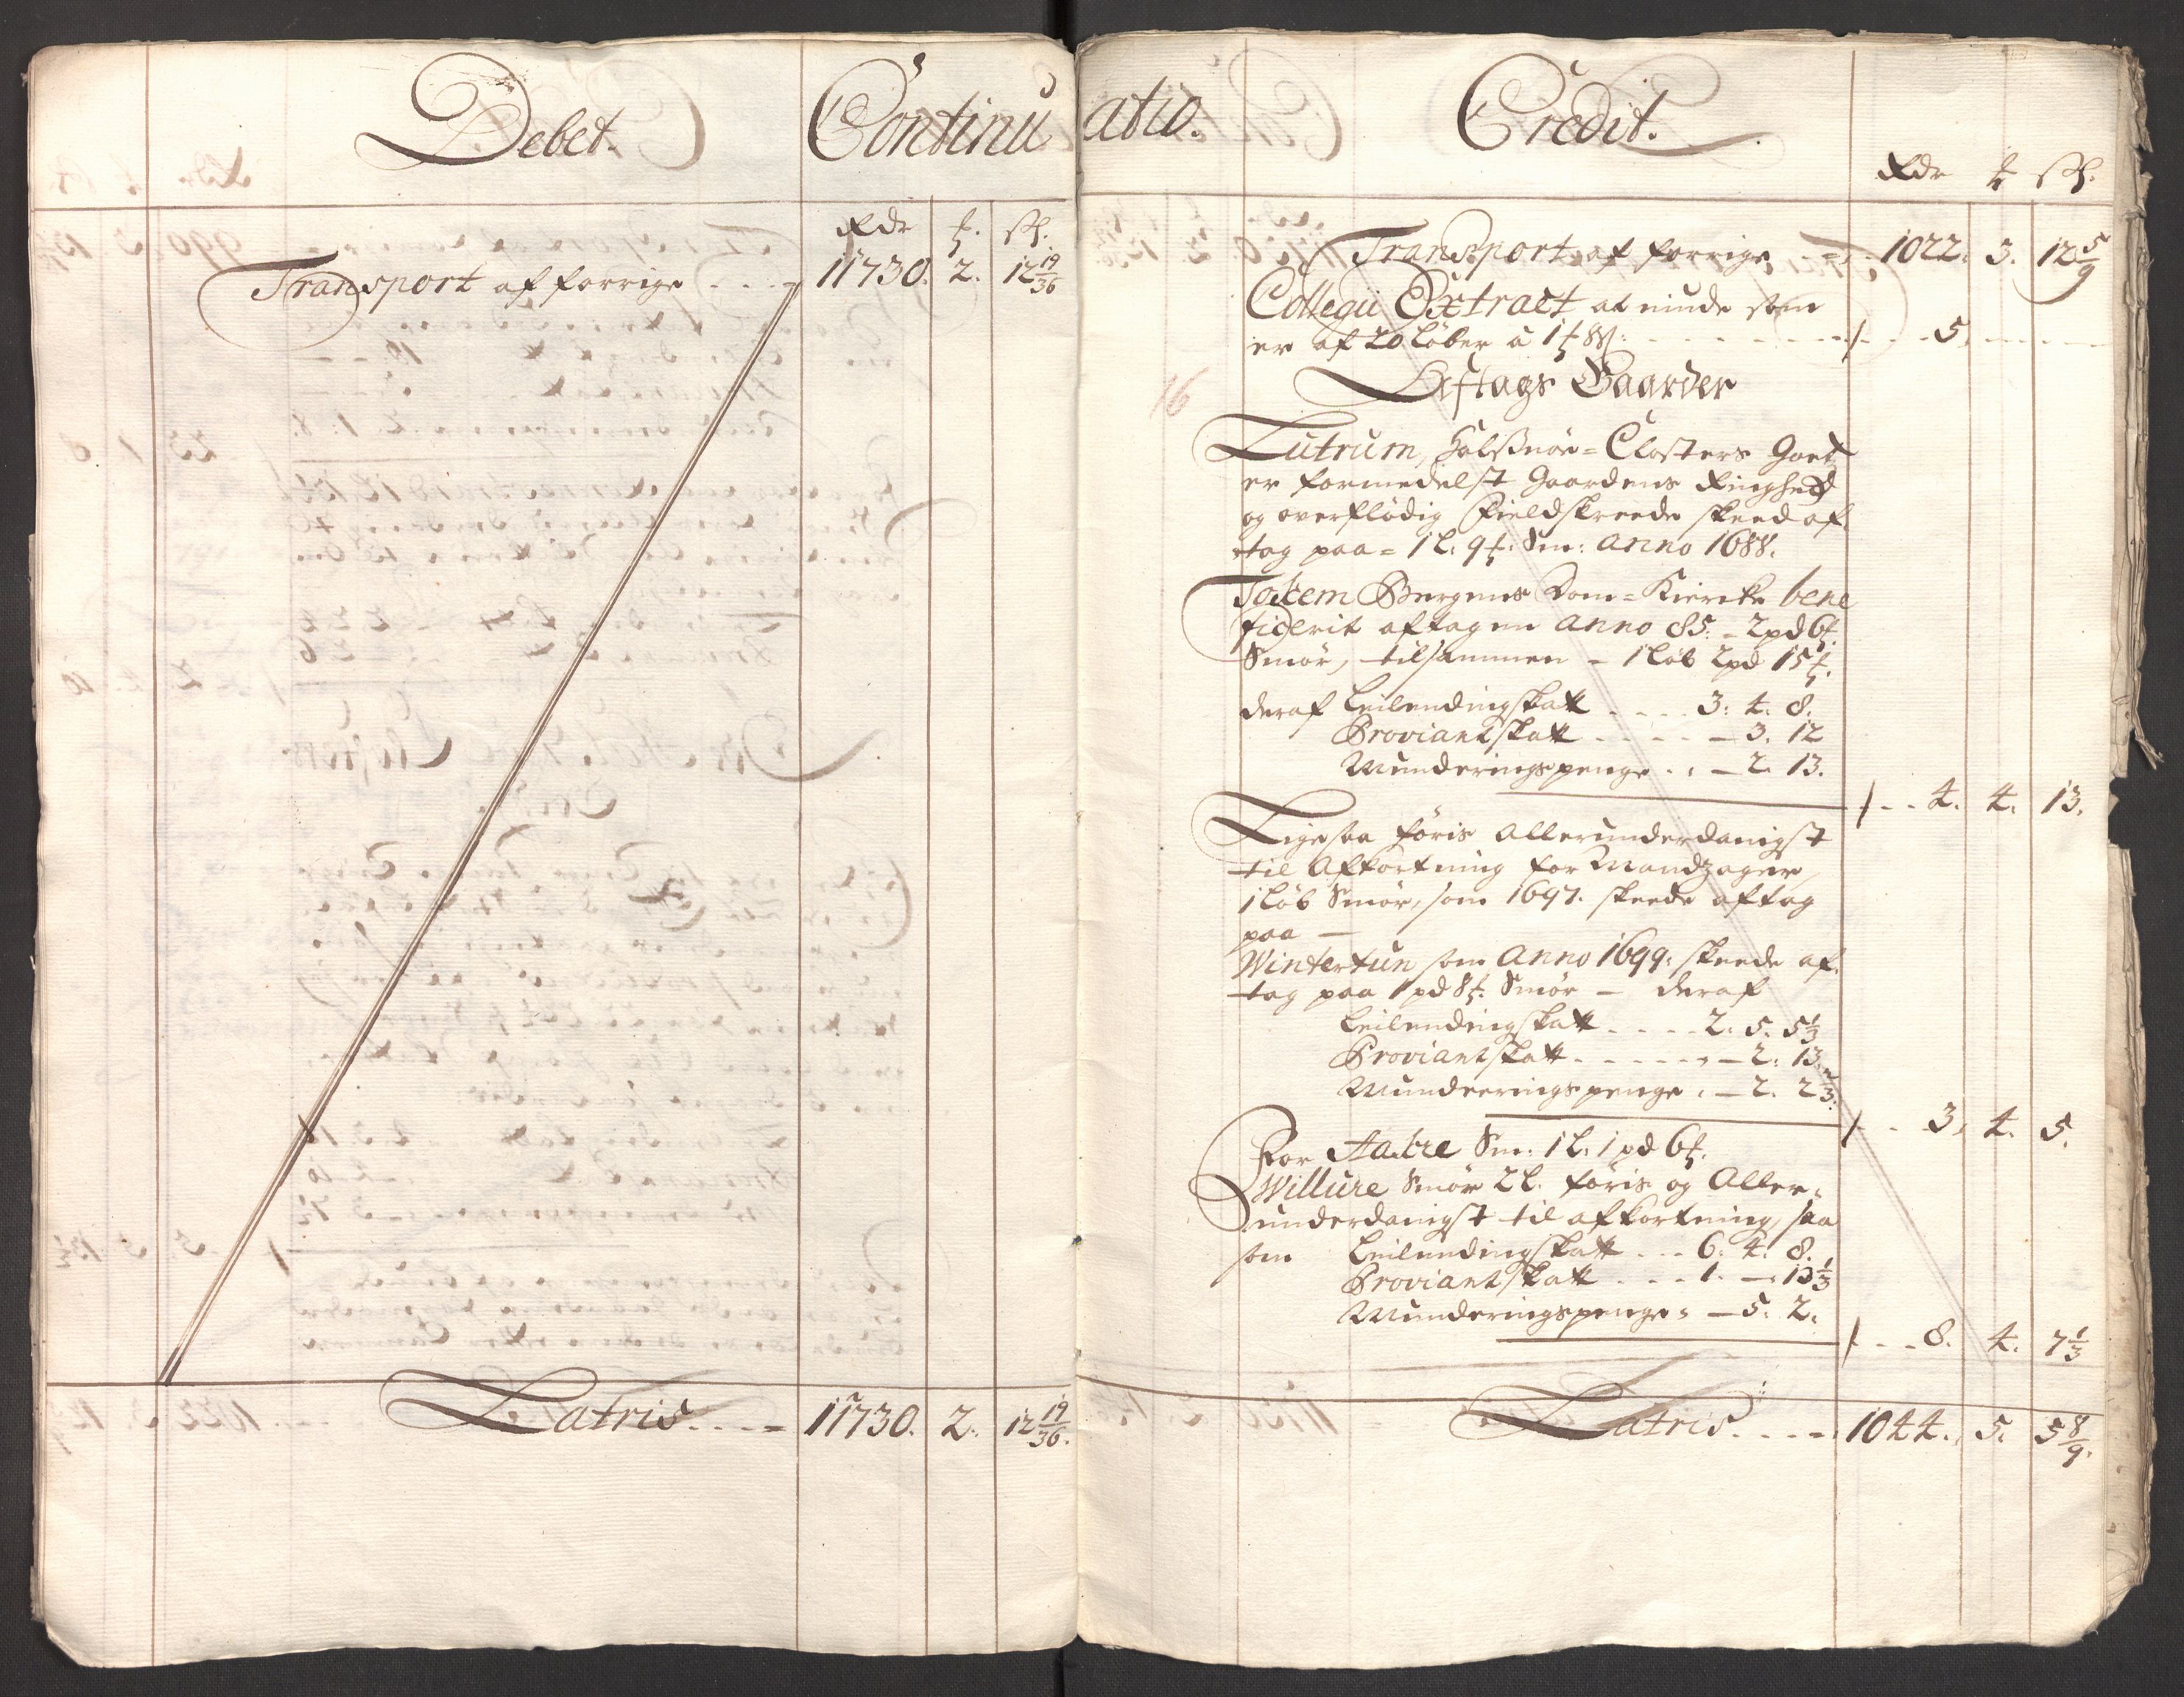 Debet.
Continu
Rdr ß sk.
Transport af forrige - - - 11730. 2. 12 19/36
Latris - - - - 11730. 2. 12 19/36.
atio.
Credit.
Rdr sk.
Transport af forrige - - 1022. 3. 12 5/9
Collegii Extract at niude som
er af 20 Løber à 1 - - - 5.
16
Aftags Gaarder
Lutrum, Halsnøe=Closters Goed
er formedelst Gaardens Ringhed
og overflødig Fieldskreede skeed af
tag paa = 1 L: 9 Sm: Anno 1688.
Toskem Bergens Dom=Kiercke bene
ficerit aftagen Anno 85. - 2 pd 6
Smør, tilsammen - 1 Løb 2 pd 15
deraf Leilendingskatt - - - 3: 4: 8.
Proviantskatt - - - 3. 12
Munderingspenge - - 2. 13.
- - 4. 4. 13.
Ligesaa føris Allerunderdanigst
til Afkortning for Mandzager
1 Løb Smør, som 1697. skeede aftag
paa -
Wintertun som Anno 1699: skeede af
tag paa 1 pd 8 Smør - deraf
Leilendingskatt - - - - 2. 5. 5 1/3
Proviantskatt - - - - - 2: 13.
Munderingspenge - - 2. 2 2/3.
- - 3. 4. 5.
For Aakre Sm: 1 L. 1 pd 6
Willure Smør 2 L. føris og Aller-
underdanigst til afkortning, saa
som Leilendingskatt - - - 6: 4: 8.
Proviantskatt - - - 1. - 13 1/3
Munderingspenge - - 5. 2.
- - - 8. 4. 7 1/3
Latris - - - - 1044. 5. 5 8/9.